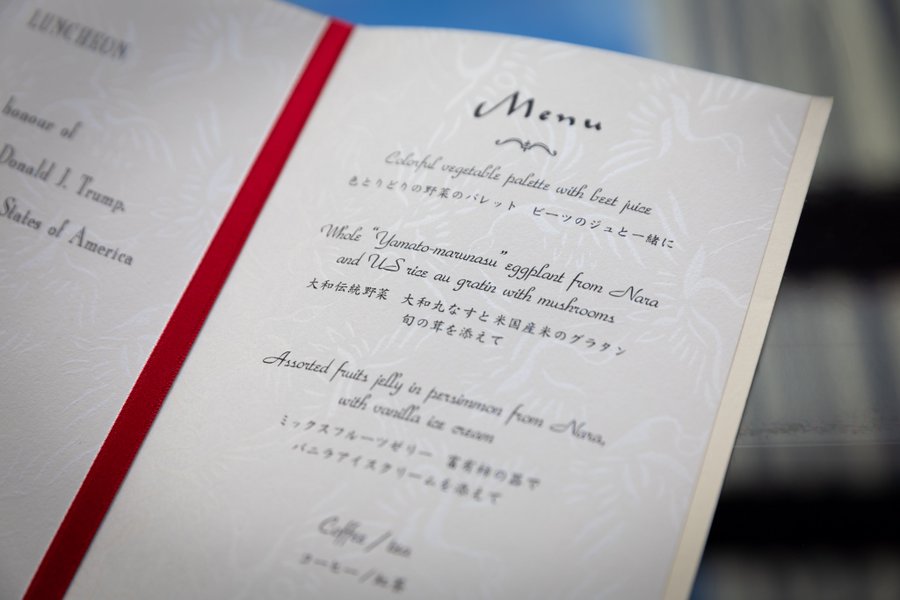 LUNCHEON
honour of
Donald J. Trump,
States of America
Menu
Colorful vegetable palette with beet juice
色とりどりの野菜のパレット ビーツのジュと一緒に
Whole “Yamato-marunasu” eggplant from Nara
and US rice au gratin with mushrooms
大和伝統野菜 大和丸なすと米国産米のグラタン
旬の茸を添えて
Assorted fruits jelly in persimmon from Nara,
with vanilla ice cream
ミックスフルーツゼリー 富有柿の器で
バニラアイスクリームを添えて
Coffee / tea
コーヒー/紅茶